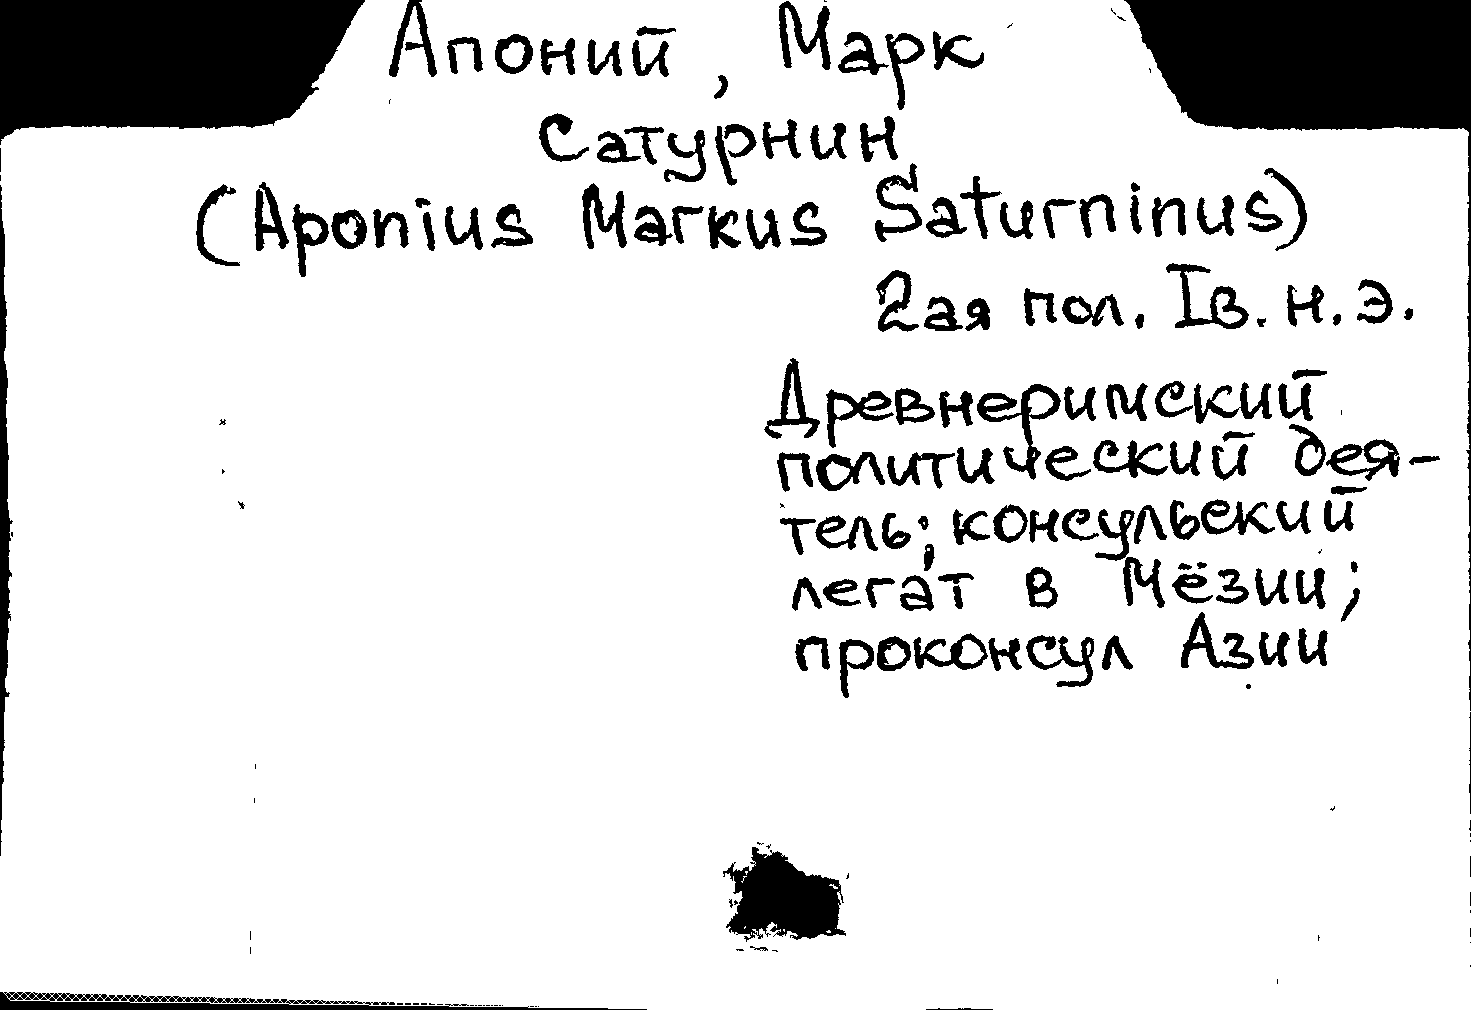 Апоний, Марк
Сатурнин
(Aponius Markus Saturninus)
2ая пол. Iв. н. э.
Древнеримский
политический дея-
тель; консульский
легат в Мёзии;
проконсул Азии